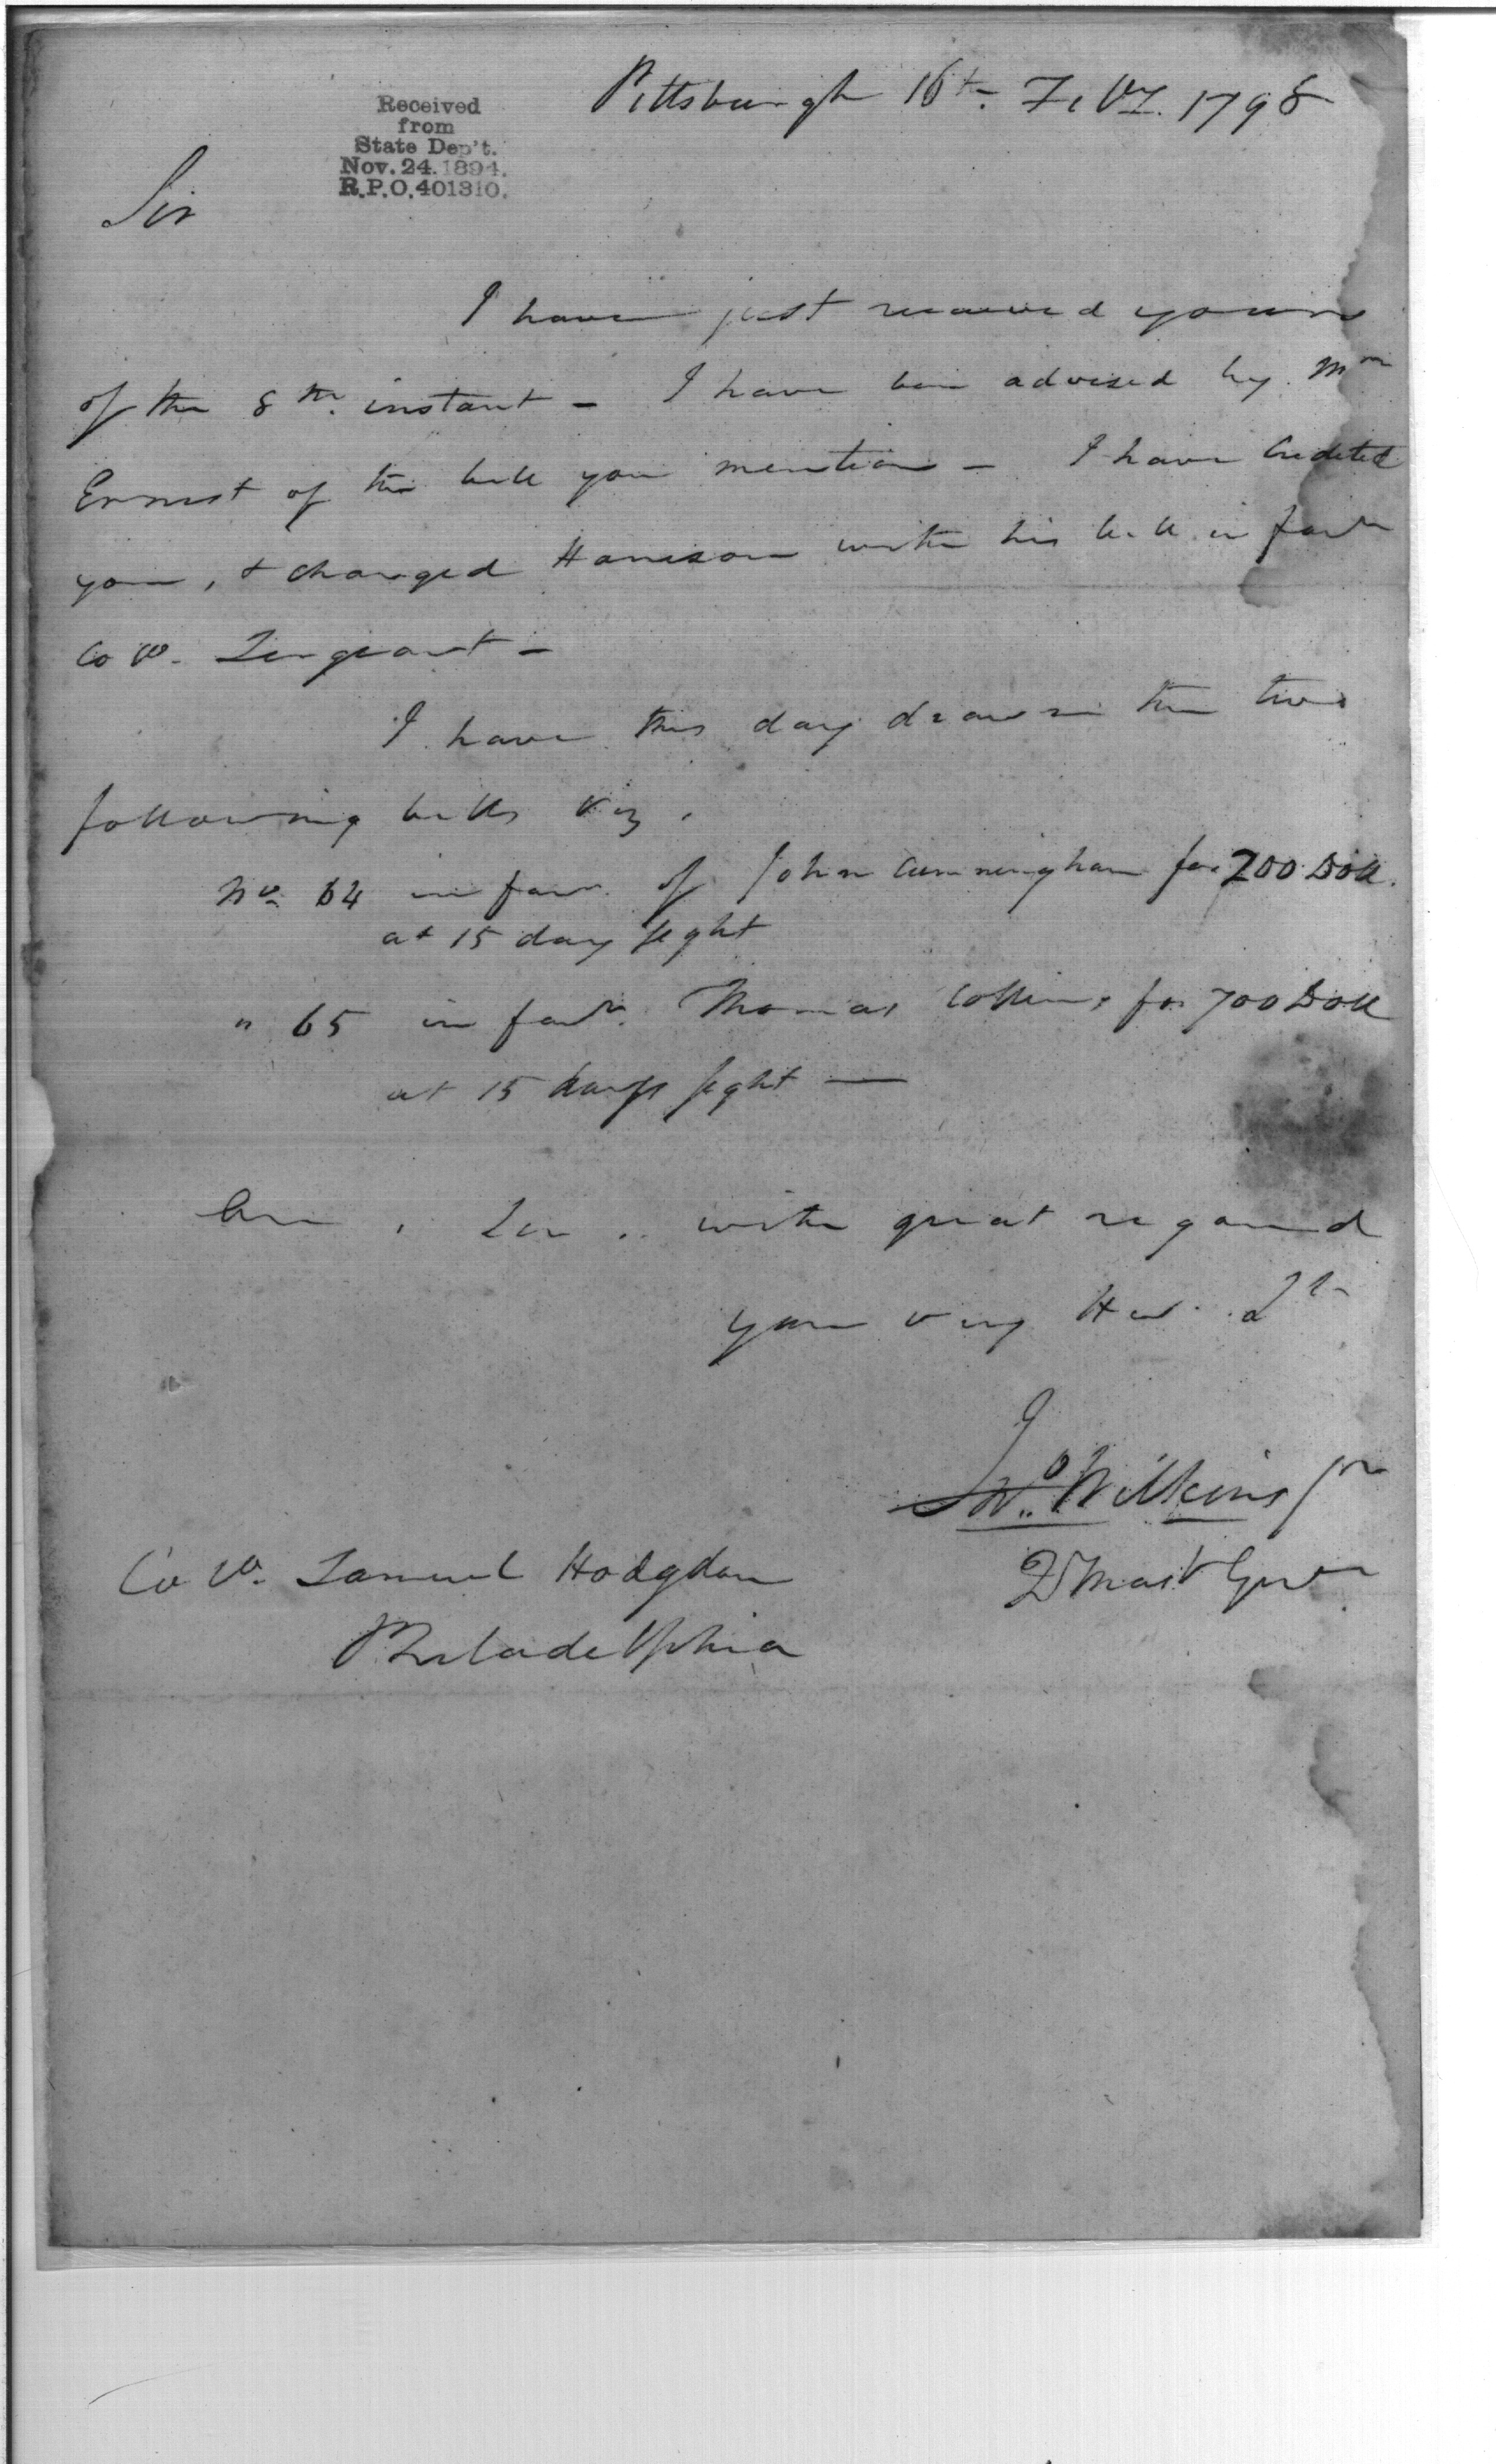 Pittsburgh 16th. Feby. 1798
Received
from
State Dep't.
Nov. 24. 1894.
R.P.O. 401310.
Sir
I have just received yours
of the 8th. instant - I have been advised by Mr
Ernest of the bill you mention - I have Credited
you, & charged Harrison with his bill in favr
Colo. Sergeant -
I have this day drawn the two
following bills Viz.
No. 64 in favr. of John Cunningham for 200 Doll.
at 15 days sight
" 65 in favr. Thomas Collins for 700 Doll
at 15 days sight —
Am, Sir, with great regard
your very Hub. St
Jno. Wilkins Jr
QrMast Genr
Colo. Samuel Hodgdon
Philadelphia